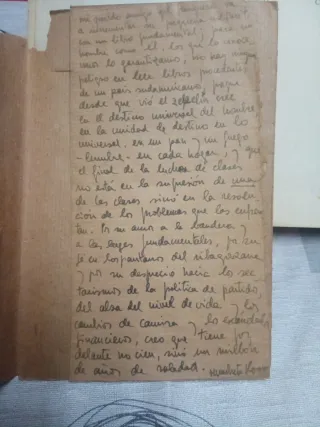 mi querido amigo que
a aumentar su pequeña
con un libro fundamental, para un
hombre como él, los que lo conoce
mos lo garantizamos, no hay ningún
peligro en leer libros procedentes
de un país sudamericano, porque
desde que vio el cree
en el destino universal del hombre
en la unidad de destino en lo
universal, en un pan y un fuego
- lumbre - en cada hogar, y que
el final de la lucha de clases
no está en la supresión de una
de las clases sino en la resolu
ción de los problemas que las enfren
tan. Por su amor a la bandera y
a las leyes fundamentales, por su
fe en los pantanos del
y por su desprecio hacia los sec
tarismos de la política de partido
del alza del nivel de vida, y los
cambios de camisa y los escándalos
financieros, creo que tiene por
delante no cien, sino un millón
de años de soledad.